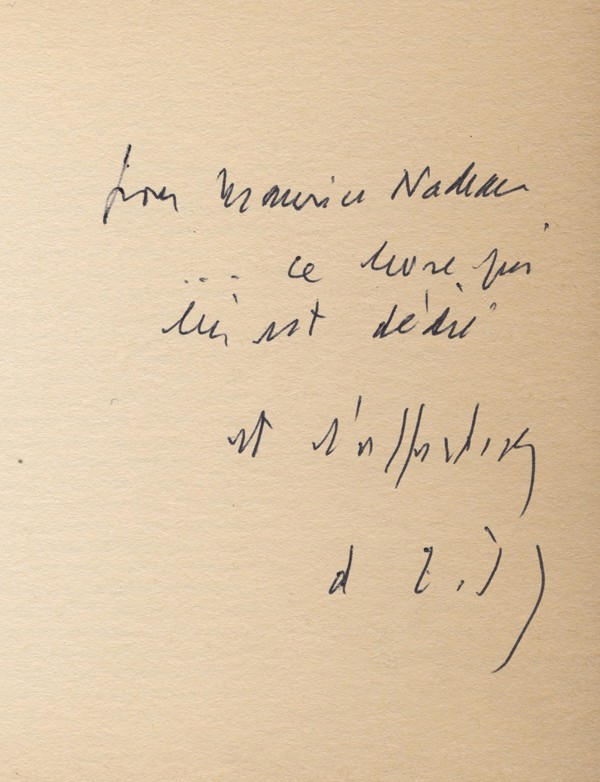 pour Maurice Nadeau
... ce livre qui
lui est dédié
et l'affection